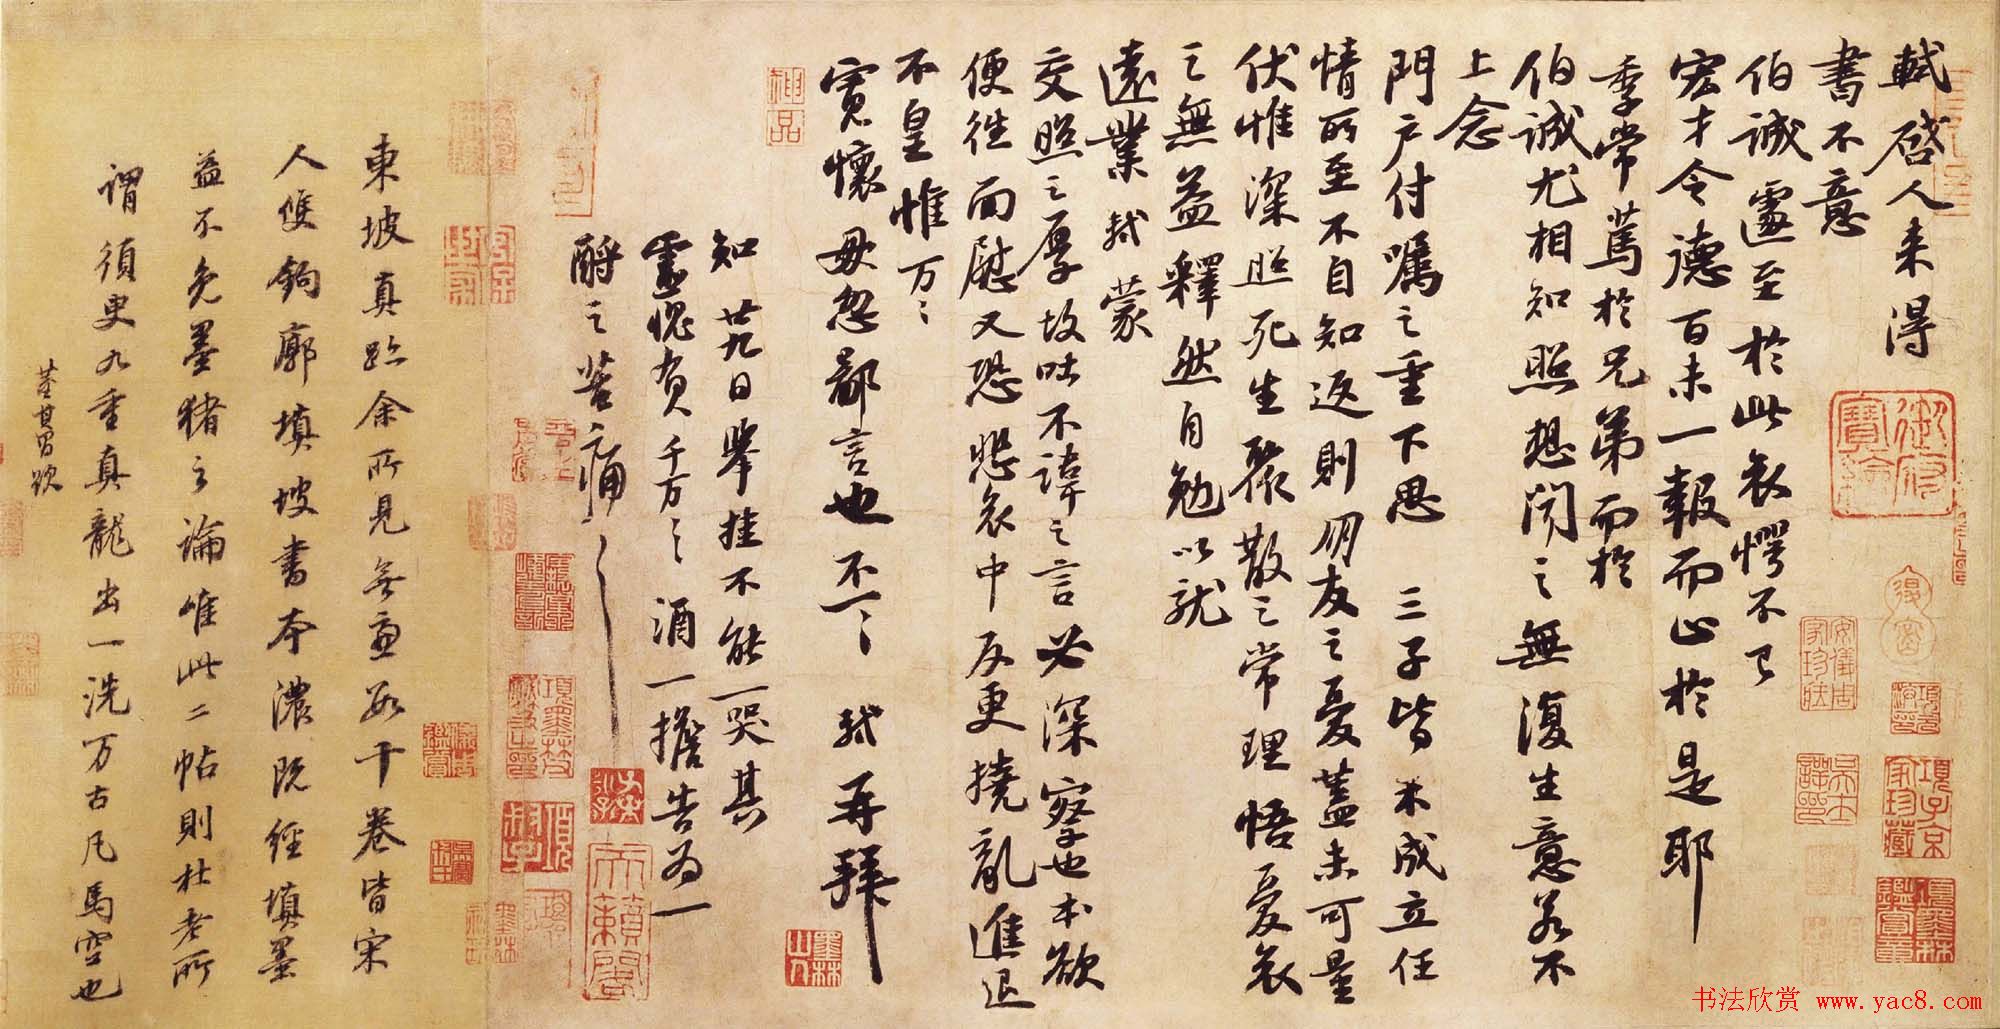 軾啓人来得
書不意
伯誠遽至於此哀愕不已
宏才令德百未一報而止於是耶
季常篤於兄弟而於
伯誠尤相知照想聞之無復生意若不
上念
門户付囑之重下思三子皆未成立任
情所至不自知返則朋友之憂蓋未可量
伏惟深照死生聚散之常理悟憂哀
之無益釋然自勉以就
遠業軾蒙
交照之厚故吐不諱之言必深察也本欲
便往面慰又恐悲哀中反更撓亂進退
不皇惟万〻
寬懷毋忽鄙言也不一〻軾再拜
知廿九日舉挂不能一哭其
靈愧負千万〻酒一擔告為一
酹之苦痛〻
東坡真跡余所見無慮數十卷皆宋
人雙鉤廓填坡書本濃既經填墨
益不免墨豬之論唯此二帖則杜老所
謂須臾九重真龍出一洗万古凡馬空也
董其昌跋
御府寶繪
項子京家珍藏
項墨林鑑賞章
安儀周家珍藏
墨林山人
天籟閣
神品
书法欣赏 www.yac8.com